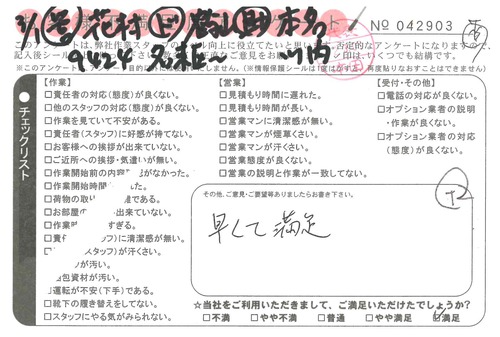 № 042903
このアンケートは、弊社作業スタッフのレベル向上に役立てたいと思います。否定的なアンケートになりますので、
【作業】
□責任者の対応(態度)が良くない。
□他のスタッフの対応(態度)が良くない。
□作業を見ていて不安がある。
□責任者(スタッフ)に好感が持てない。
□お客様への挨拶が出来ていない。
□ご近所への挨拶・気遣いが無い。
□作業開始前の内容
がなかった。
□作業開始時間
した。
□荷物の取り
雑である。
□お部屋の
出来ていない。
□作業時
すぎる。
□責任
フ)に清潔感が無い。
スタッフ)が汗くさい。
が汚い。
包資材が汚い。
運転が不安(下手)である。
□靴下の履き替えをしてない。
□スタッフにやる気がみられない。
【営業】
□見積もり時間に遅れた。
□見積もり時間が長い。
□営業マンに清潔感が無い。
□営業マンが煙草くさい。
□営業マンが汗くさい。
□営業態度が良くない。
□営業の説明と作業が一致してない。
【受付・その他】
□電話の対応が良くない。
□オプション業者の説明
・作業が良くない。
□オプション業者の対応
(態度)が良くない。
●チェックリスト
その他、ご意見・ご要望等ありましたらお書き下さい。
早くて満足
+2
☆当社をご利用いただきまして、ご満足いただけたでしょうか?
□不満 □やや不満 □普通 □やや満足 ☑満足